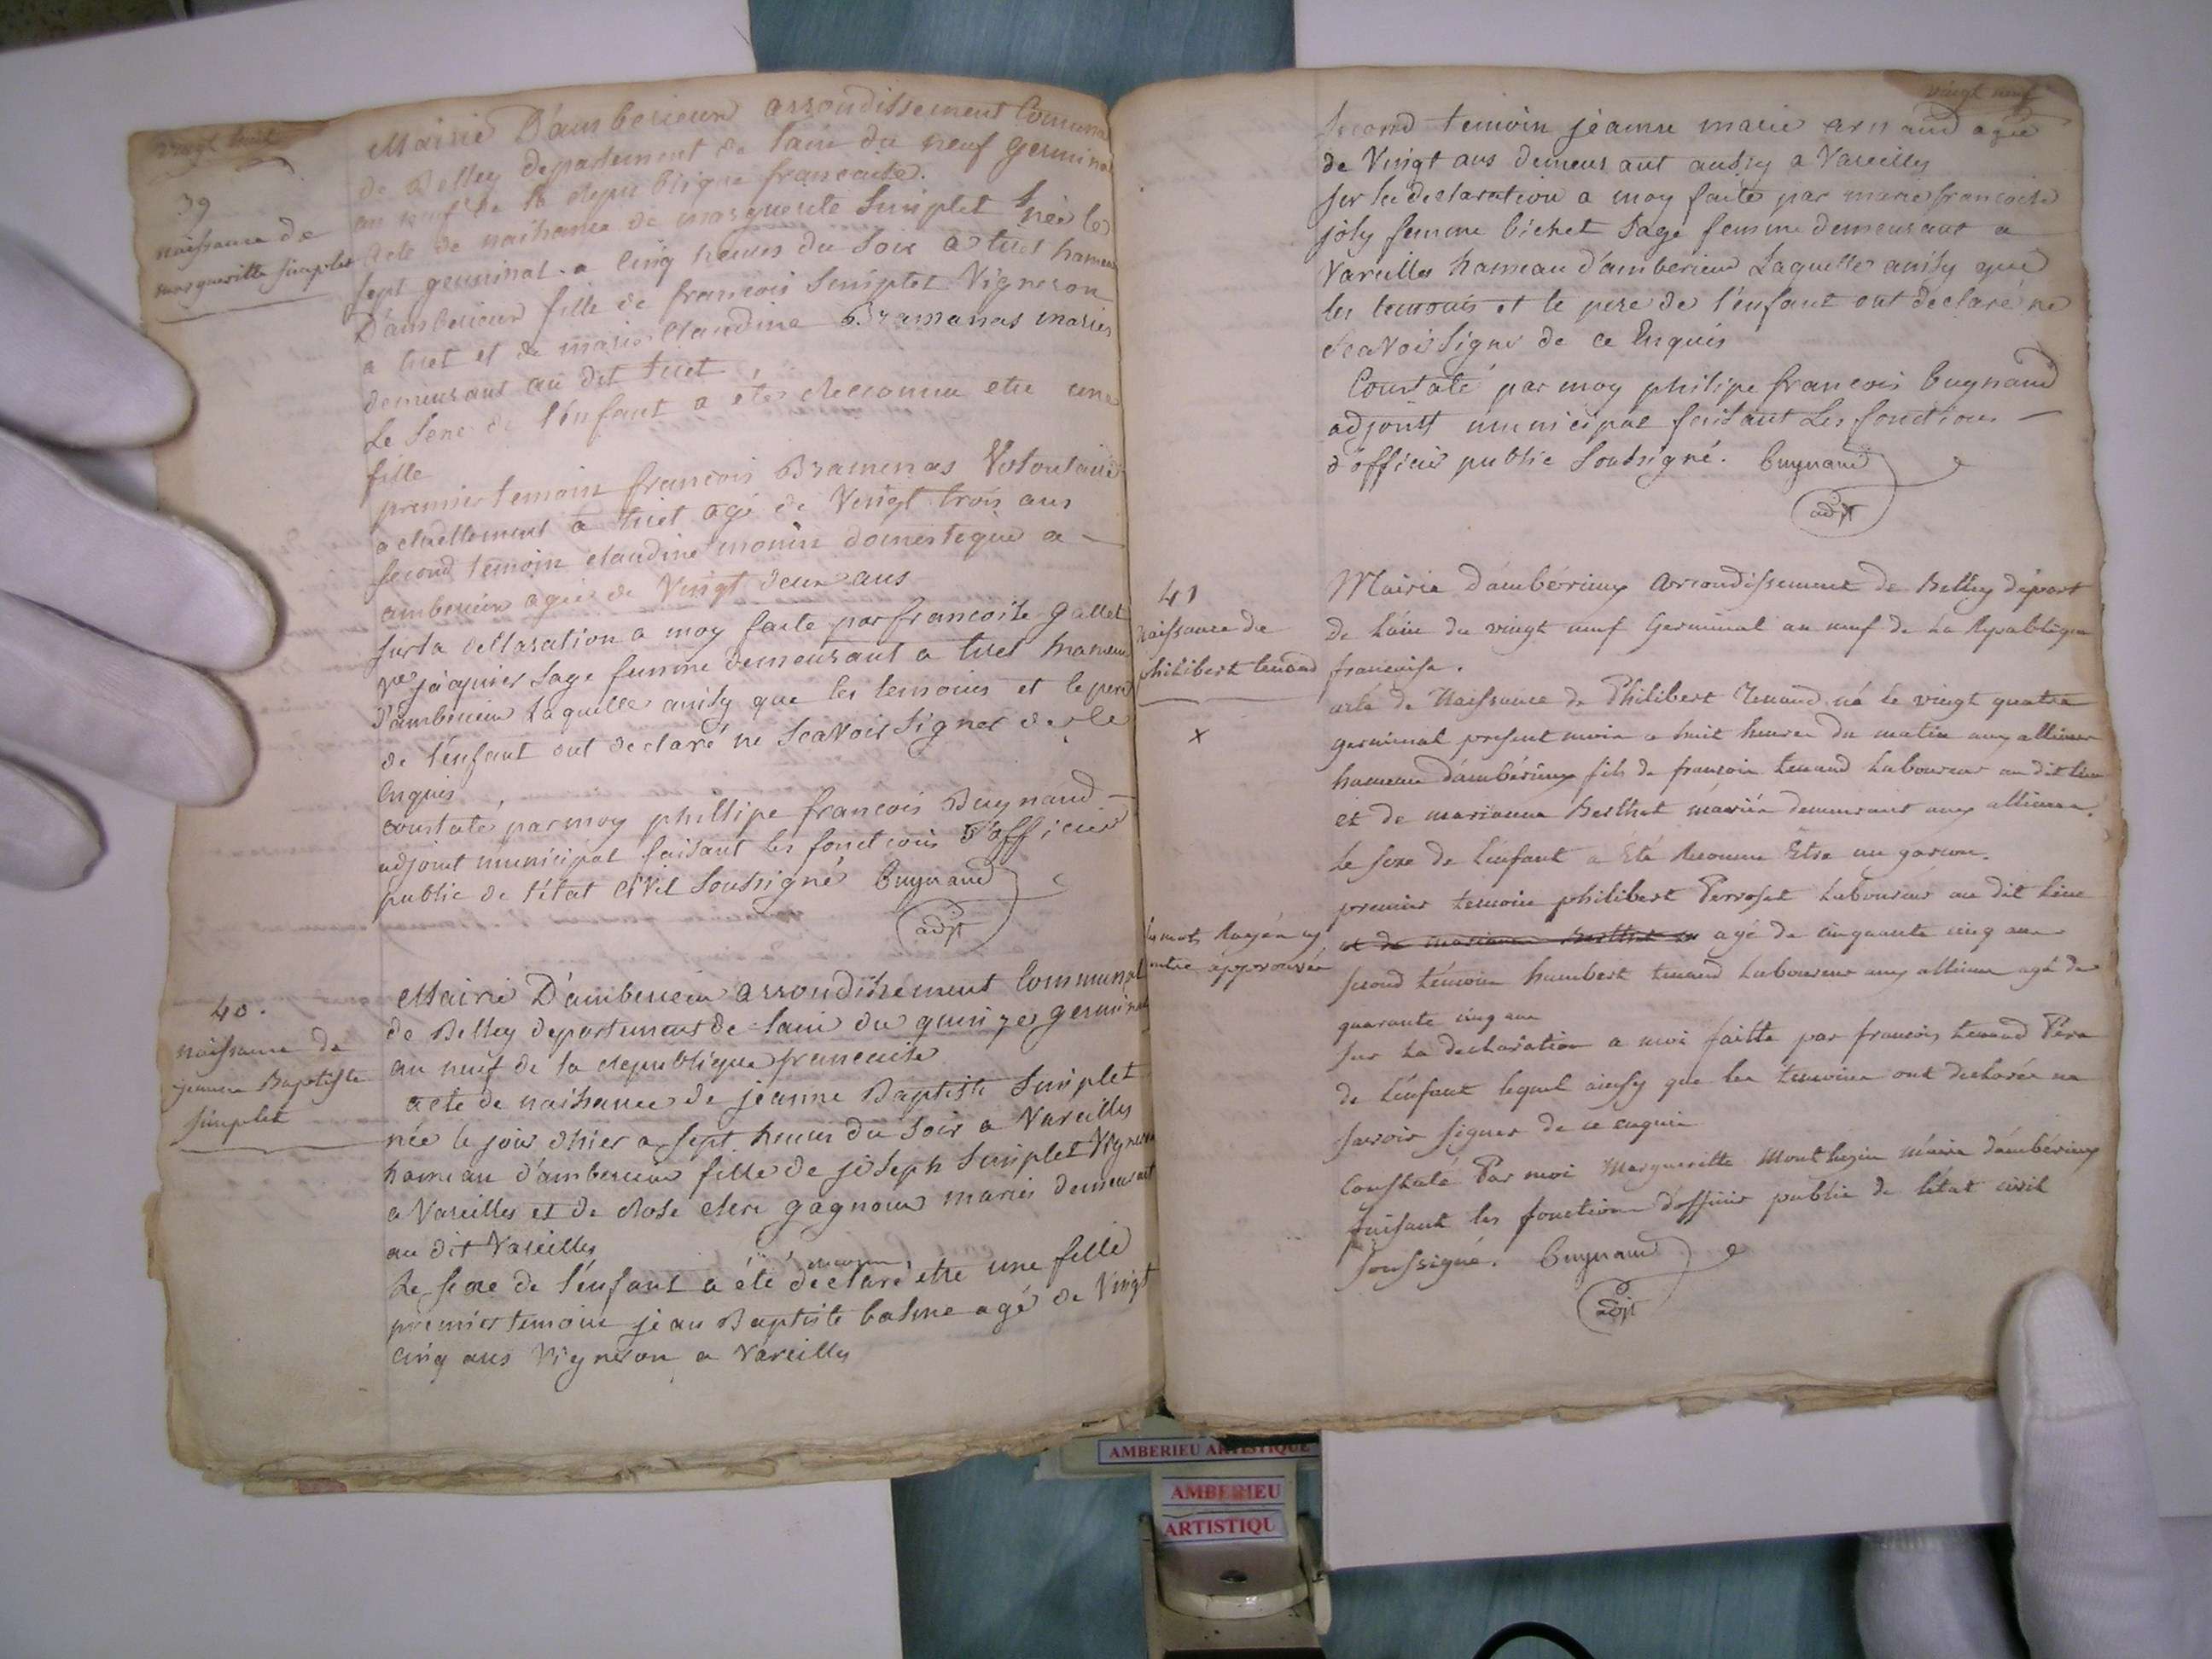 vingt huit
39
naissance de
margueritte simplet
Mairie D'amberieux arrondissement Communal
de Belley departement de l'ain du neuf germinal
an neuf de la republique francaise.
acte de naissance de marguerite Simplet née le
sept germinal a cinq heures du soir a tiret hameau
D'amberieux fille de francois Simplet Vigneron
a tiret et de marie Claudine Bramanas mariés
demeurant au dit tiret
Le sexe de l'enfant a eté reconnu etre une
fille
premier temoin francois Bramenas Volontaire
actuellement a tiret agé de Vingt trois ans
second temoin claudine monin domestique a
amberieux agée de Vingt deux ans
sur la declaration a moy faite par francoise gallet
Ve jacquier sage femme demeurant a tiret hameau
d'amberieux Laquelle ainsy que les temoins et le pere
de l'enfant ont declaré ne scavoir signer de ce
Enquis
constaté par moy philipe francois Bugnand
adjoint municipal faisant les fonctions D'officier
public de l'état civil soussigné Bugnand
adjt
40.
naissance de
jeanne Baptiste
simplet
Mairie D'amberieux arrondissement Communal
de Belley departement de l'ain du quinze germinal
an neuf de la republique francaise
acte de naissance de jeanne Baptiste Simplet
née le jour d'hier a sept heures du soir a Vareilles
hameau d'amberieux fille de joseph Simplet Vigneron
a Vareilles et de Rose clere gagneux mariés demeurant
au dit Vareilles
reconnu
Le sexe de l'enfant a été déclaré etre une fille
premier temoin jean Baptiste balme agé de Vingt
cinq ans Vigneron a Vareilles
vingt neuf
Second temoin jeanne marie arnaud agée
de Vingt ans demeurant aussy a Vareilles
sur la declaration a moy faite par marie francoise
joly femme bichet sage femme demeurant a
Vareilles hameau d'amberieux Laquelle ainsy que
les temoins et le pere de l'enfant ont declaré ne
scavoir signer de ce Enquis
Constaté par moy philipe francois bugnand
adjoint municipal faisant Les fonctions
d'officier public soussigné. Bugnand
adjt
41
naissance de
philibert tenand
x
Mairie d'ambérieux arrondissement de Belley départ
de l'ain du vingt neuf Germinal an neuf de la République
francaise.
acte de Naissance de Philibert Tenand né le vingt quatre
germinal present mois a huit heures du matin aux allimes
hameau d'ambérieux fils de francois tenand laboureur au dit lieu
et de marianne Berthet mariés demeurant aux allimes.
le sexe de l'enfant a Eté Reconnu Etre un garcon.
premier temoin philibert Perroset laboureur au dit lieu
les mots Rayés cy
contre approuvés
et de marianne Berthet agé de cinquante cinq ans
second témoin humbert tenand laboureur aux allimes agé de
quarante cinq ans
sur la declaration a moi faitte par francois tenand Pere
de l'enfant lequel ainsy que les temoins ont declarés ne
savoir signer de ce enquis
Constaté Par moi Margueritte Monthezin maire d'ambérieux
faisant les fonctions d'officier public de l'état civil
soussigné. Bugnand
adjt
AMBERIEU ARTISTIQUE
AMBERIEU
ARTISTIQU